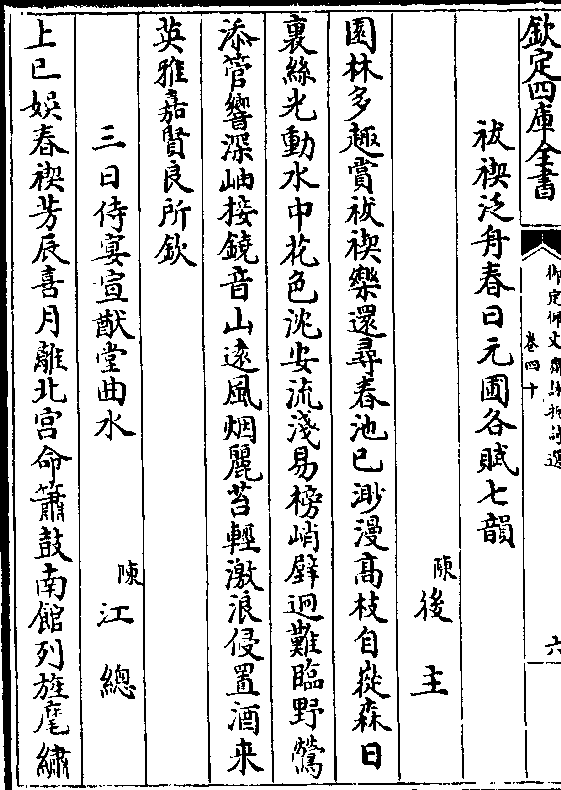 欽定四庫全書
御定佩文齋詠物詩選
卷四十
六
祓禊泛舟春日元圃各賦七韻
陳後主
園林多趣賞祓禊樂還尋春池已渺漫高枝自嶔森日
裏絲光動水中花色沈安流淺易榜峭壁迥難臨野鶯
添管響深岫接鐃音山遠風烟麗苔輕激浪侵置酒来
英雅嘉賢良所欽
三日侍宴宣猷堂曲水
陳江總
上巳娛春禊芳辰喜月離北宮命簫鼓南館列旌麾繡